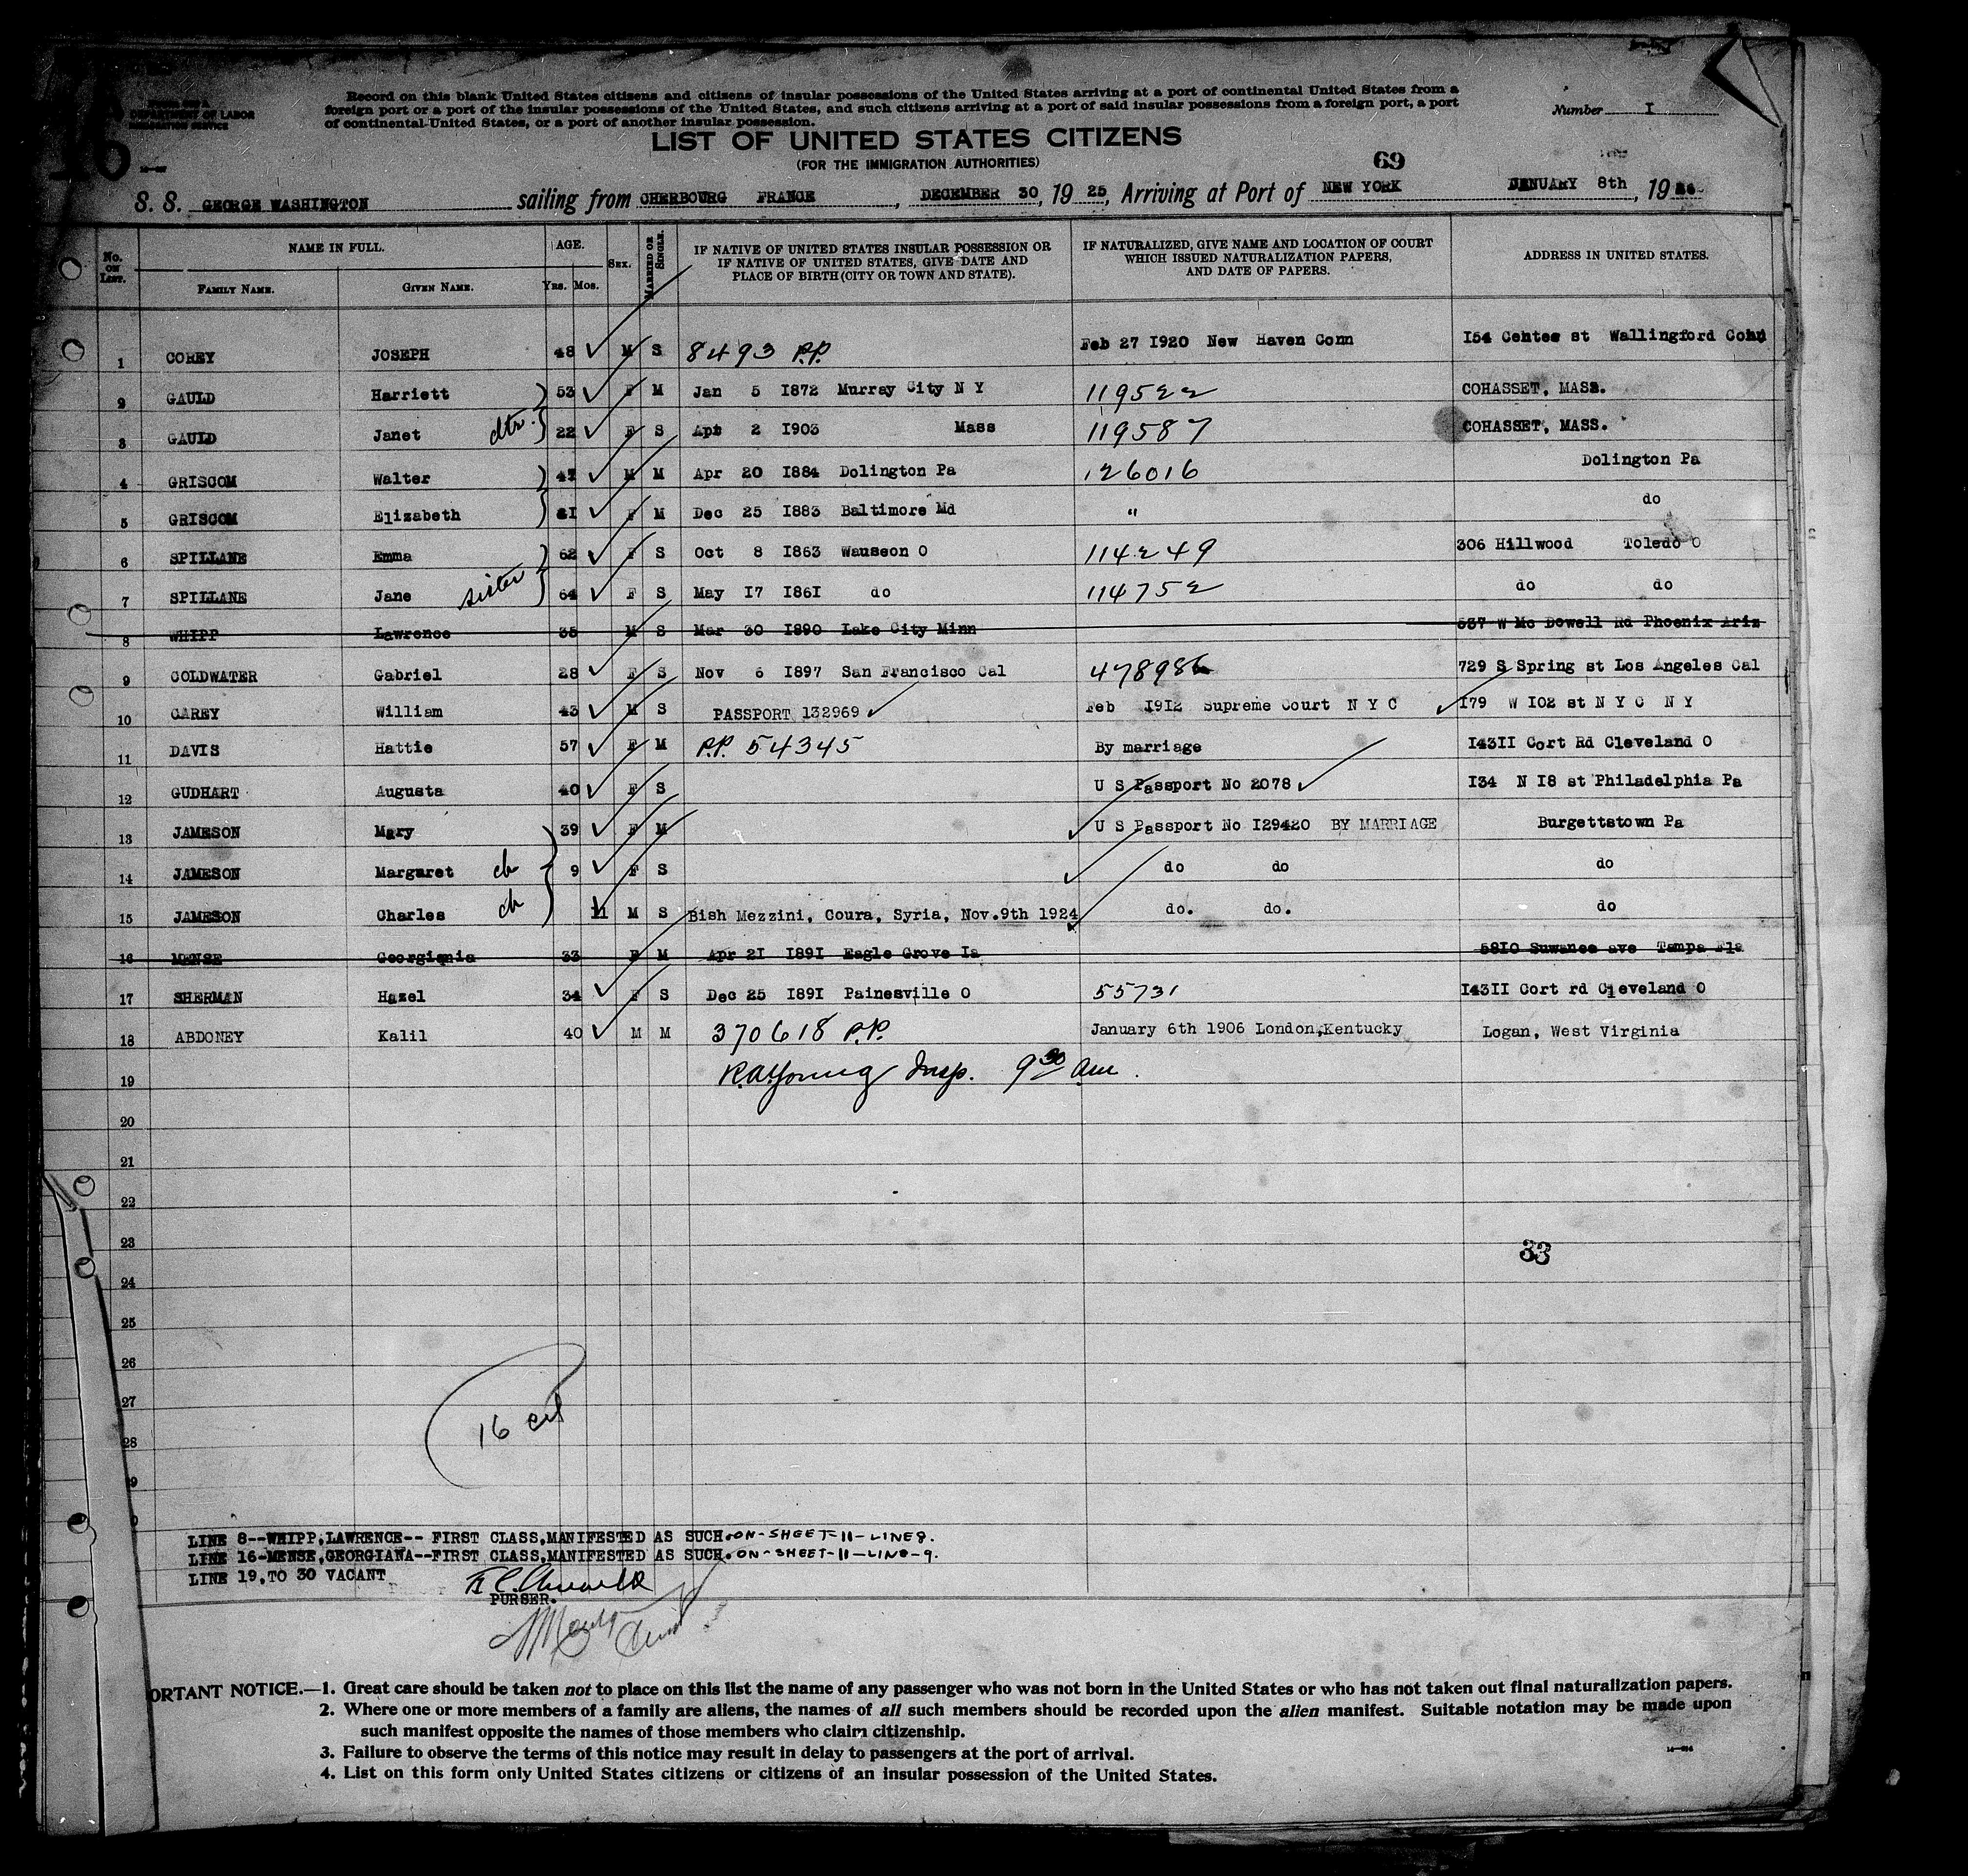 DEPARTMENT OF LABOR
IMMIGRATION SERVICE
Record on this blank United States citizens and citizens of insular possessions of the United States arriving at a port of continental United States from a
foreign port or a port of the insular possessions of the United States, and such citizens arriving at a port of said insular possessions from a foreign port, a port
of continental United States, or a port of another insular possession.
Number I
LIST OF UNITED STATES CITIZENS
(FOR THE IMMIGRATION AUTHORITIES)
69
S. S. GEORGE WASHINGTON sailing from CHERBOURG FRANCE, DECEMBER 30, 1925, Arriving at Port of NEW YORK JANUARY 8th, 1926
No. ON LIST. NAME IN FULL. AGE. SEX. MARRIED OR SINGLE. IF NATIVE OF UNITED STATES INSULAR POSSESSION OR IF NATIVE OF UNITED STATES, GIVE DATE AND PLACE OF BIRTH (CITY OR TOWN AND STATE). IF NATURALIZED, GIVE NAME AND LOCATION OF COURT WHICH ISSUED NATURALIZATION PAPERS, AND DATE OF PAPERS. ADDRESS IN UNITED STATES.
FAMILY NAME. GIVEN NAME. YRS. MOS.
1 COREY JOSEPH 48 M S 8493 P.P. Feb 27 1920 New Haven Conn 154 Center st Wallingford Conn
2 GAULD Harriett 53 F M Jan 5 1872 Murray City N Y 119522 COHASSET, MASS.
3 GAULD Janet dtr. 22 F S Apr 2 1903 Mass 119587 COHASSET, MASS.
4 GRISCOM Walter 41 M M Apr 20 1884 Dolington Pa 126016 Dolington Pa
5 GRISCOM Elizabeth 41 F M Dec 25 1883 Baltimore Md " do
6 SPILLANE Emma 62 F S Oct 8 1863 Wauseon O 114249 306 Hillwood Toledo O
7 SPILLANE Jane sister 64 F S May 17 1861 do 114752 do do
8 WHIPP Lawrence 35 M S Mar 30 1890 Lake City Minn 537 W Mc Dowell Rd Phoenix Ariz
9 COLDWATER Gabriel 28 F S Nov 6 1897 San Francisco Cal 478986 729 S Spring st Los Angeles Cal
10 CAREY William 43 M S PASSPORT 132969 Feb 1912 Supreme Court N Y C 179 W 102 st N Y C N Y
11 DAVIS Hattie 57 F M P.P. 54345 By marriage 14311 Cort Rd Cleveland O
12 GUDHART Augusta 40 F S U S Passport No 2078 134 N 18 st Philadelphia Pa
13 JAMESON Mary 39 F M U S Passport No 129420 BY MARRIAGE Burgettstown Pa
14 JAMESON Margaret ch 9 F S do do do
15 JAMESON Charles ch 11 M S Bish Mezzini, Coura, Syria, Nov.9th 1924 do. do. do
16 MENSE Georgiania 33 F M Apr 21 1891 Eagle Grove Ia 5810 Suwanee ave Tampa Fla
17 SHERMAN Hazel 34 F S Dec 25 1891 Painesville O 55731 14311 Cort rd Cleveland O
18 ABDONEY Kalil 40 M M 370618 P.P. January 6th 1906 London,Kentucky Logan, West Virginia
19 R.A.Young Insp. 9 30 am.
20
21
22
23
33
24
25
26
27
28
16 cit
LINE 8--WHIPP,LAWRENCE-- FIRST CLASS,MANIFESTED AS SUCH.ON-SHEET-11-LINE 8.
LINE 16-MENSE,GEORGIANA--FIRST CLASS,MANIFESTED AS SUCH.ON-SHEET-11-LINE-9.
LINE 19,TO 30 VACANT
PURSER.
ORTANT NOTICE.—1. Great care should be taken not to place on this list the name of any passenger who was not born in the United States or who has not taken out final naturalization papers.
2. Where one or more members of a family are aliens, the names of all such members should be recorded upon the alien manifest. Suitable notation may be made upon
such manifest opposite the names of those members who claim citizenship.
3. Failure to observe the terms of this notice may result in delay to passengers at the port of arrival.
4. List on this form only United States citizens or citizens of an insular possession of the United States.